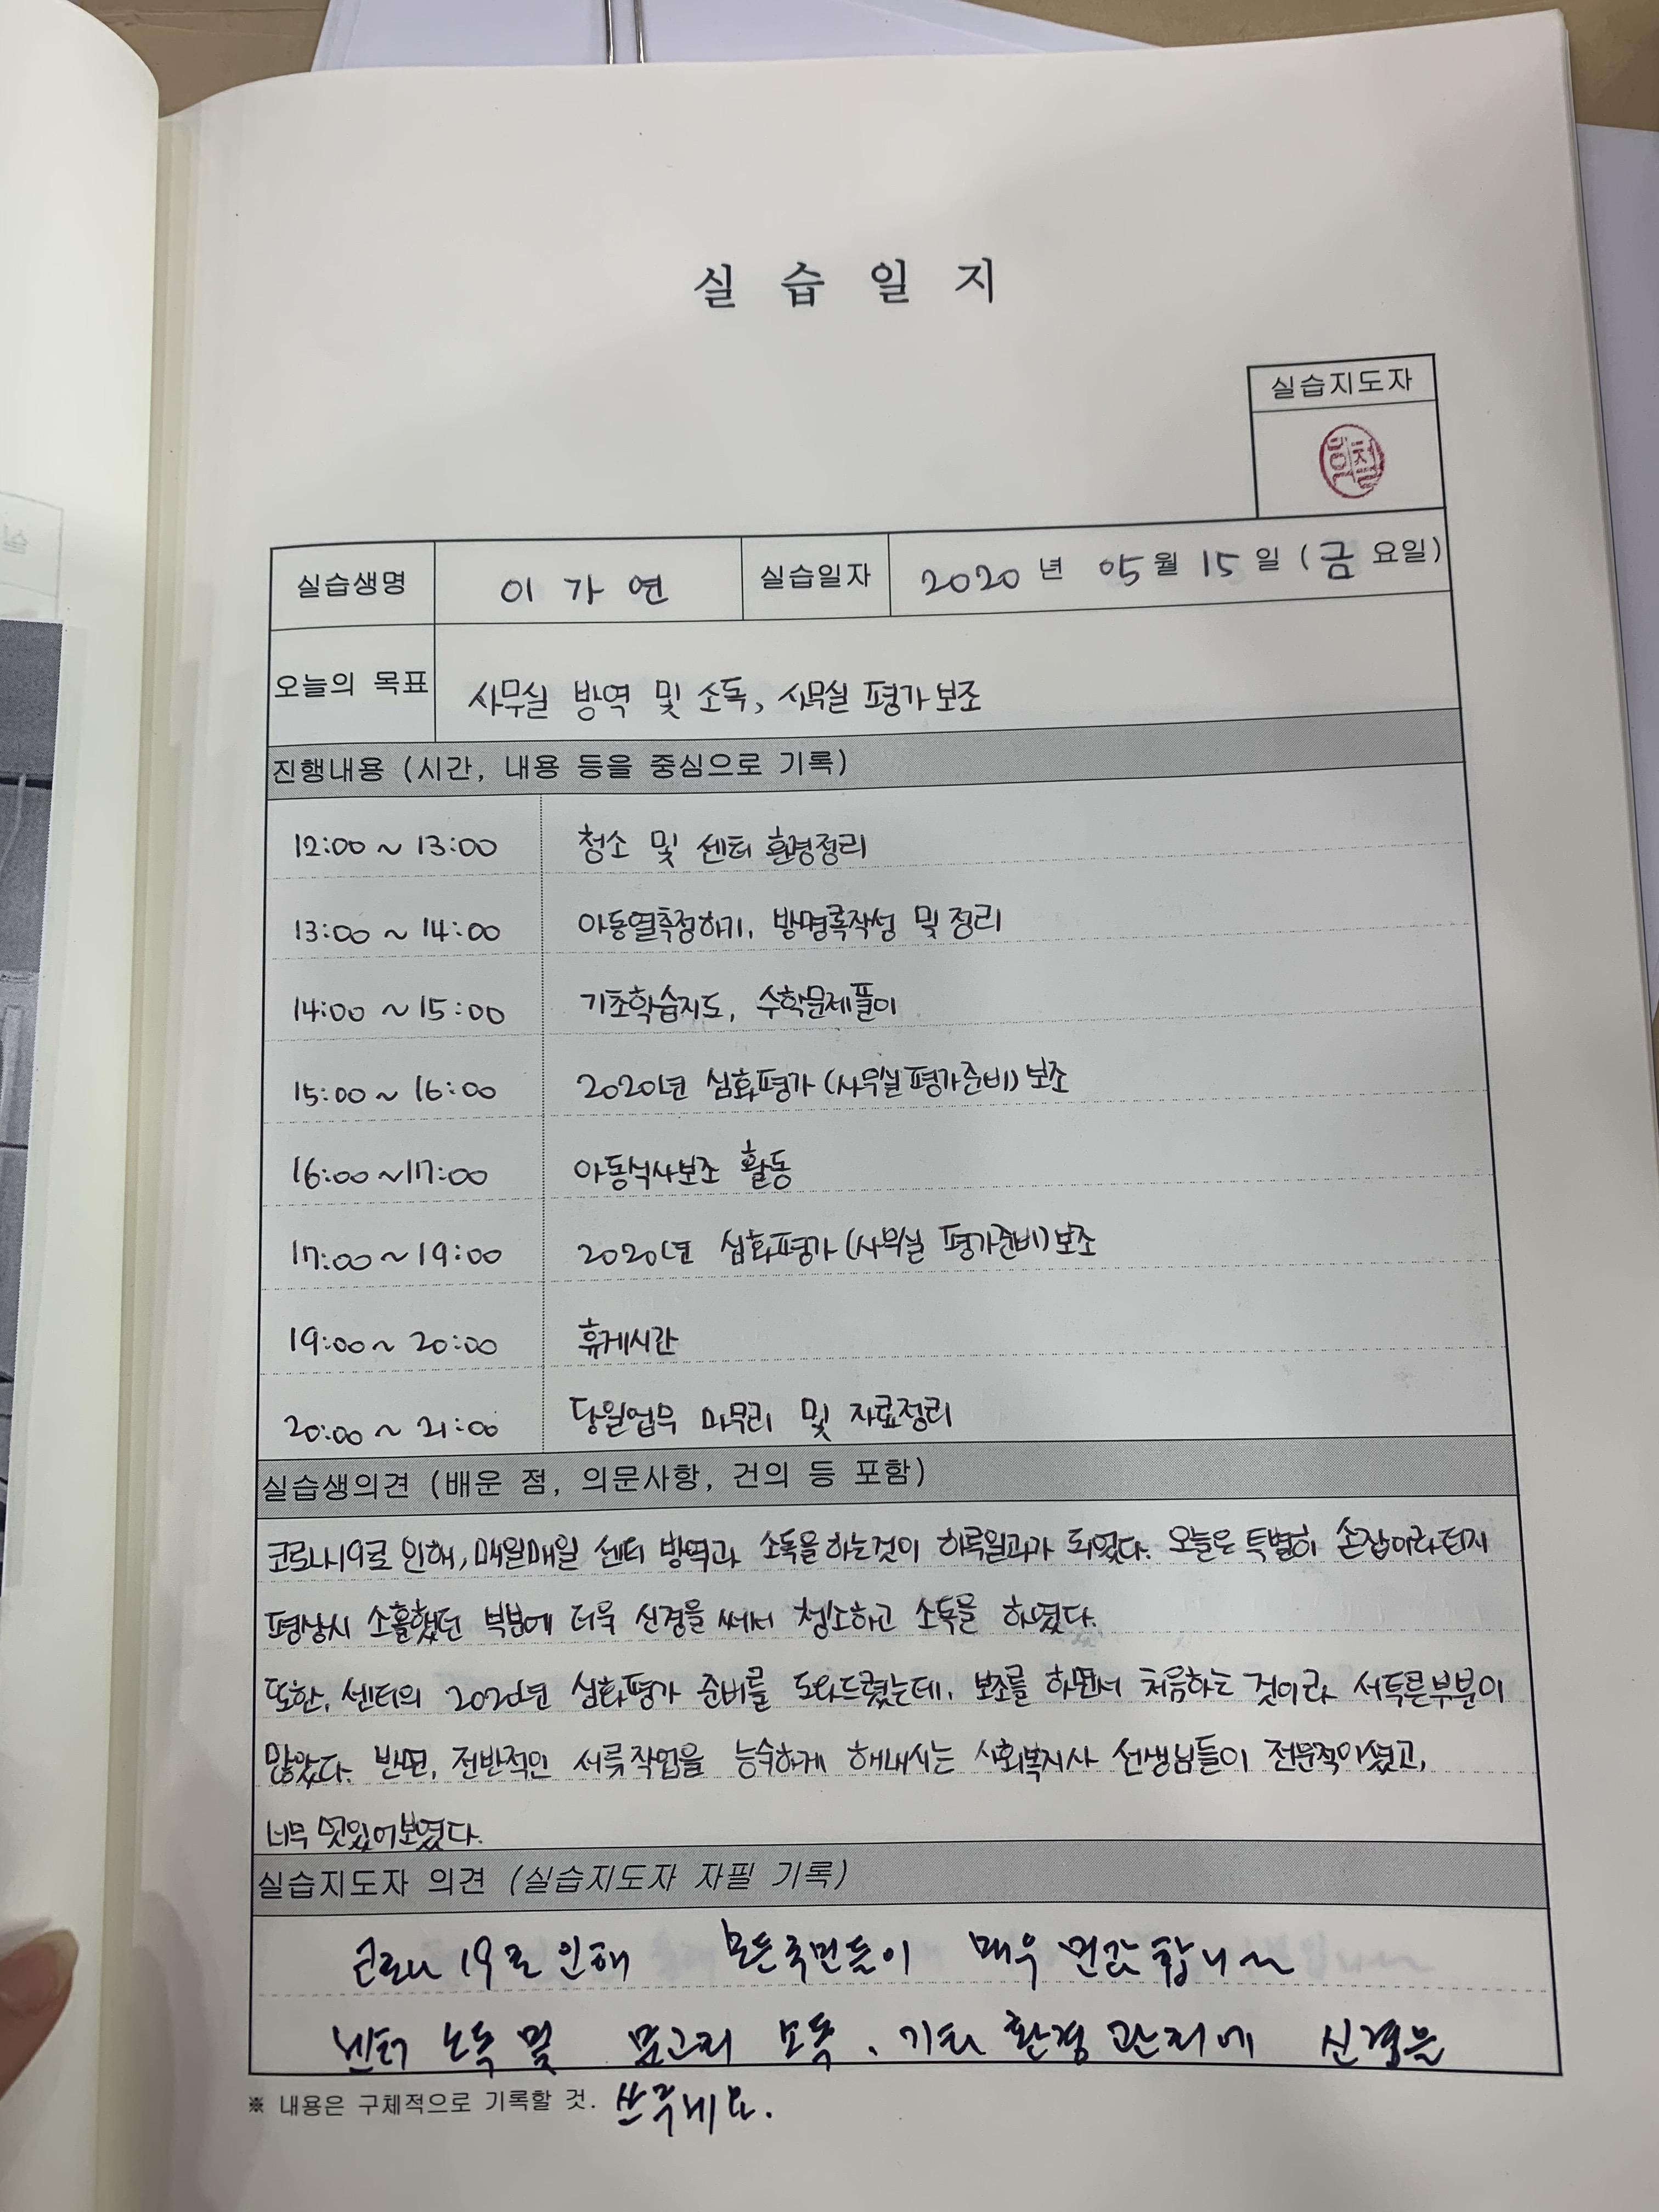 실 습 일 지
실습지도자
실습생명 이 가 연 실습일자 2020 년 05 월 15 일 ( 금 요일)
오늘의 목표 사무실 방역 및 소독, 사무실 평가보조
진행내용 (시간, 내용 등을 중심으로 기록)
12:00 ~ 13:00 청소 및 센터 환경정리
13:00 ~ 14:00 아동열측정하기, 방명록작성 및 정리
14:00 ~ 15:00 기초학습지도, 수학문제풀이
15:00 ~ 16:00 2020년 심화평가 (사무실 평가준비) 보조
16:00 ~ 17:00 아동식사보조 활동
17:00 ~ 19:00 2020년 심화평가 (사무실 평가준비) 보조
19:00 ~ 20:00 휴게시간
20:00 ~ 21:00 당일업무 마무리 및 자료정리
실습생의견 (배운 점, 의문사항, 건의 등 포함)
코로나19로 인해, 매일매일 센터 방역과 소독을 하는것이 하루일과가 되었다. 오늘은 특별히 손잡이라던지
평상시 소홀했던 부분에 더욱 신경을 써서 청소하고 소독을 하였다.
또한, 센터의 2020년 심화평가 준비를 도와드렸는데, 보조를 하면서 처음하는 것이라 서툰부분이
많았다. 반면, 전반적인 서류작업을 능숙하게 해내시는 사회복지사 선생님들이 전문적이셨고,
너무 멋있어보였다.
실습지도자 의견 (실습지도자 자필 기록)
코로나 19로 인해 모든국민들이 매우 민감합니다
센터 소독 및 문고리 소독, 기타 환경관리에 신경을
※ 내용은 구체적으로 기록할 것. 쓰주네요.